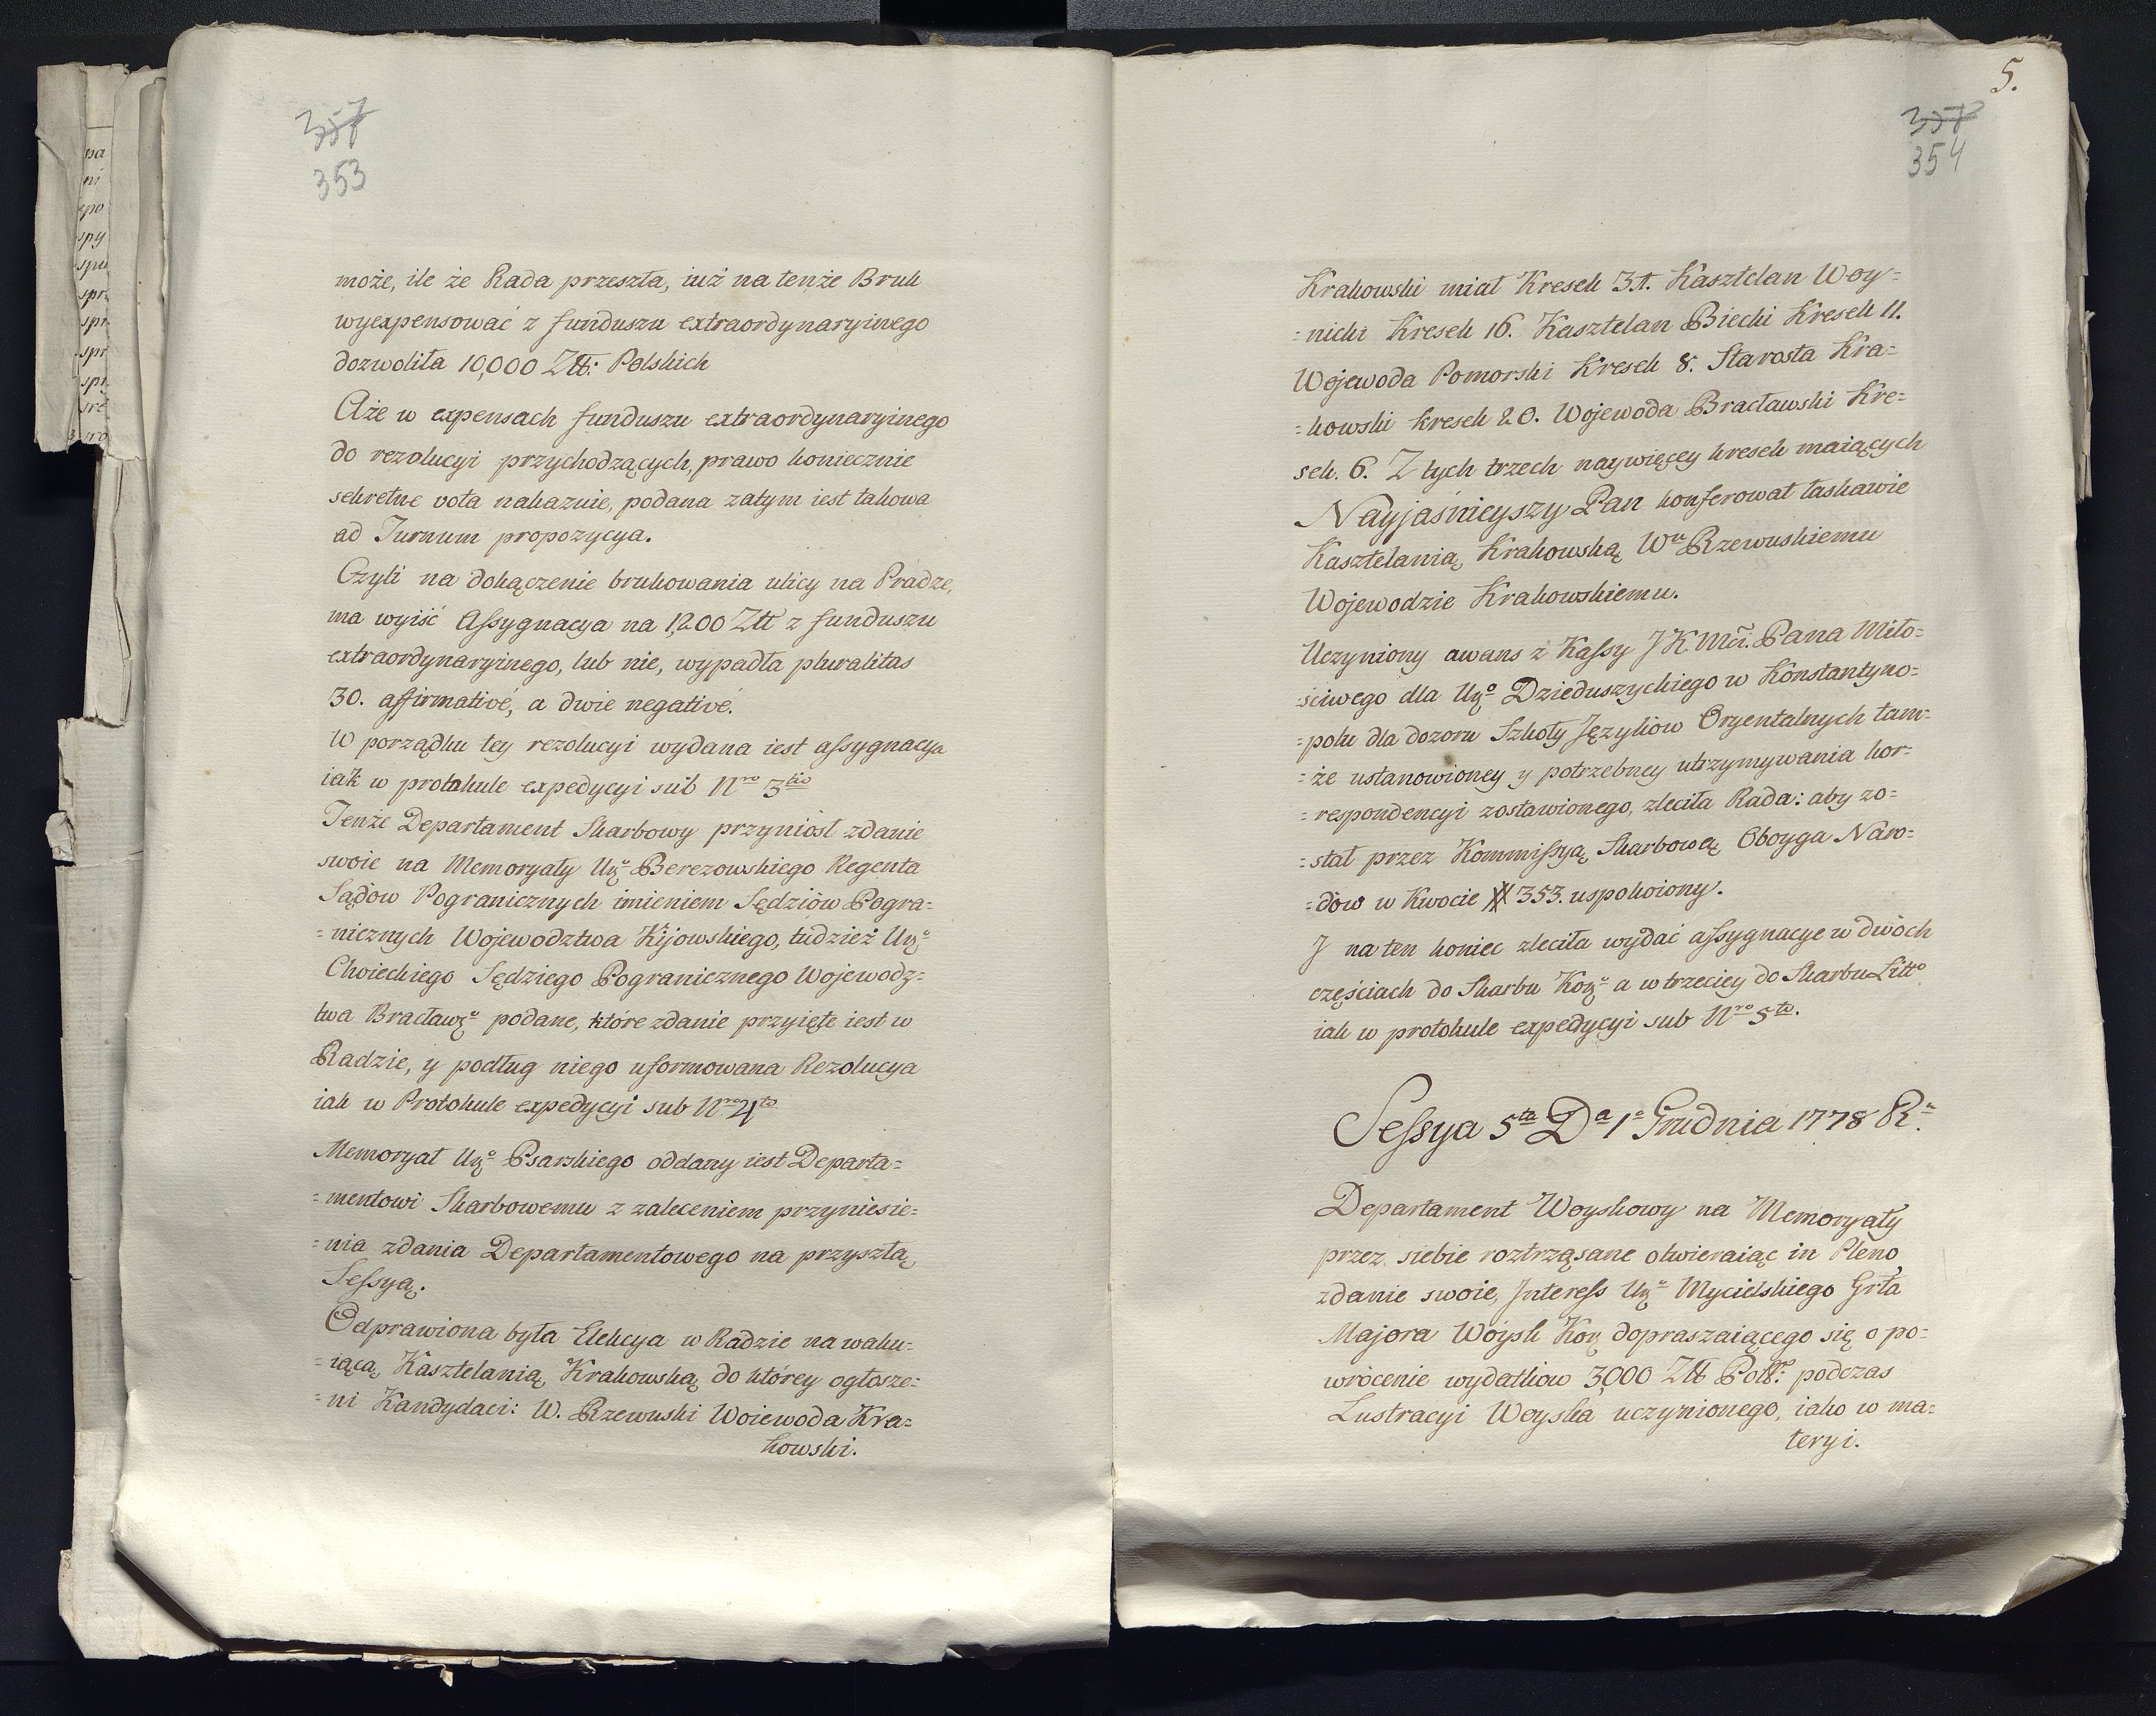 357
353
może, ile że Rada przeszła, iuż na tenże Bruk
wyexpensować z funduszu extraordynaryinego
dozwoliła 10,000 Złł: Polskich
Aże w expensach funduszu extraordynaryinego
do rezolucyi przychodzących, prawo koniecznie
sekretne vota nakazuie, podana zatym iest takowa
ad Turnum propozycya.
Czyli na dokączenie brukowania ulicy na Pradze,
ma wyiść Assygnacya na 1,200 Złł z funduszu
extraordynaryinego, lub nie, wypadła pluralitas
30. affirmativé, a dwie negativé.
W porządku tey rezolucyi wydana iest assygnacya
iak w protokule expedycyi sub Nro 3tio
Tenże Departament Skarbowy przyniosł zdanie
swoie na Memoryały Urgo Berezowskiego Regenta
Sądow Pogranicznych imieniem Sędziów Pogra=
=nicznych Wojewodztwa Kijowskiego, tudzież Urgo
Choieckiego Sędziego Pogranicznego Wojewodz=
twa Bracławgo podane, które zdanie przyięte iest w
Radzie, y podług niego uformowana Rezolucya
iak w Protokule expedycyi sub Nro 4to
Memoryał Urgo Psarskiego oddany iest Departa=
=mentowi Skarbowemu z zaleceniem przyniesie=
=nia zdania Departamentowego na przyszłą
Sessyą.
Odprawiona była Elekcya w Radzie na waku=
=iącą Kasztelanią Krakowską do którey ogłosze=
=ni Kandydaci: W. Rzewuski Woiewoda Kra=
kowski.
5.
357
354
Krakowski miał Kresek 31. Kasztelan Woy=
=nicki Kresek 16. Kasztelan Biecki Kresek 11.
Wojewoda Pomorski Kresek 8. Starosta Kra=
=kowski kresek 20. Wojewoda Bracławski Kre=
sek. 6. Z tych trzech naywięcey kresek maiących
Nayjaśnieyszy Pan konferował łaskawie
Kasztelanią Krakowską Wu Rzewuskiemu
Wojewodzie Krakowskiemu.
Uczyniony awans z Kassy JK Mci. Pana Miło=
=ściwego dla Urgo Dzieduszyckiego w Konstantyno=
=polu dla dozoru Szkoły Języków Oryentalnych tam=
=że ustanowioney y potrzebney utrzymywania kor=
=respondencyi zostawionego, zleciła Rada: aby zo=
=stał przez Kommissyą Skarbową Oboyga Naro=
=dów w Kwocie # 353. uspokoiony.
J na ten koniec zleciła wydać assygnacye w dwóch
częściach do Skarbu Korgo a w trzeciey do Skarbu Litto
iak w protokule expedycyi sub Nro 5to.
Sessya 5ta Da 1a Grudnia 1778 Ru.
Departament Woyskowy na Memoryały
przez siebie roztrząsane otwieraiąc in Pleno
zdanie swoie, Interess Urgo Mycielskiego Grła
Majora Woysk Kor dopraszaiącego się o po=
wrócenie wydatkow 3,000 Złł Poll: podczas
Lustracyi Woyska uczynionego, iako w ma=
teryi.